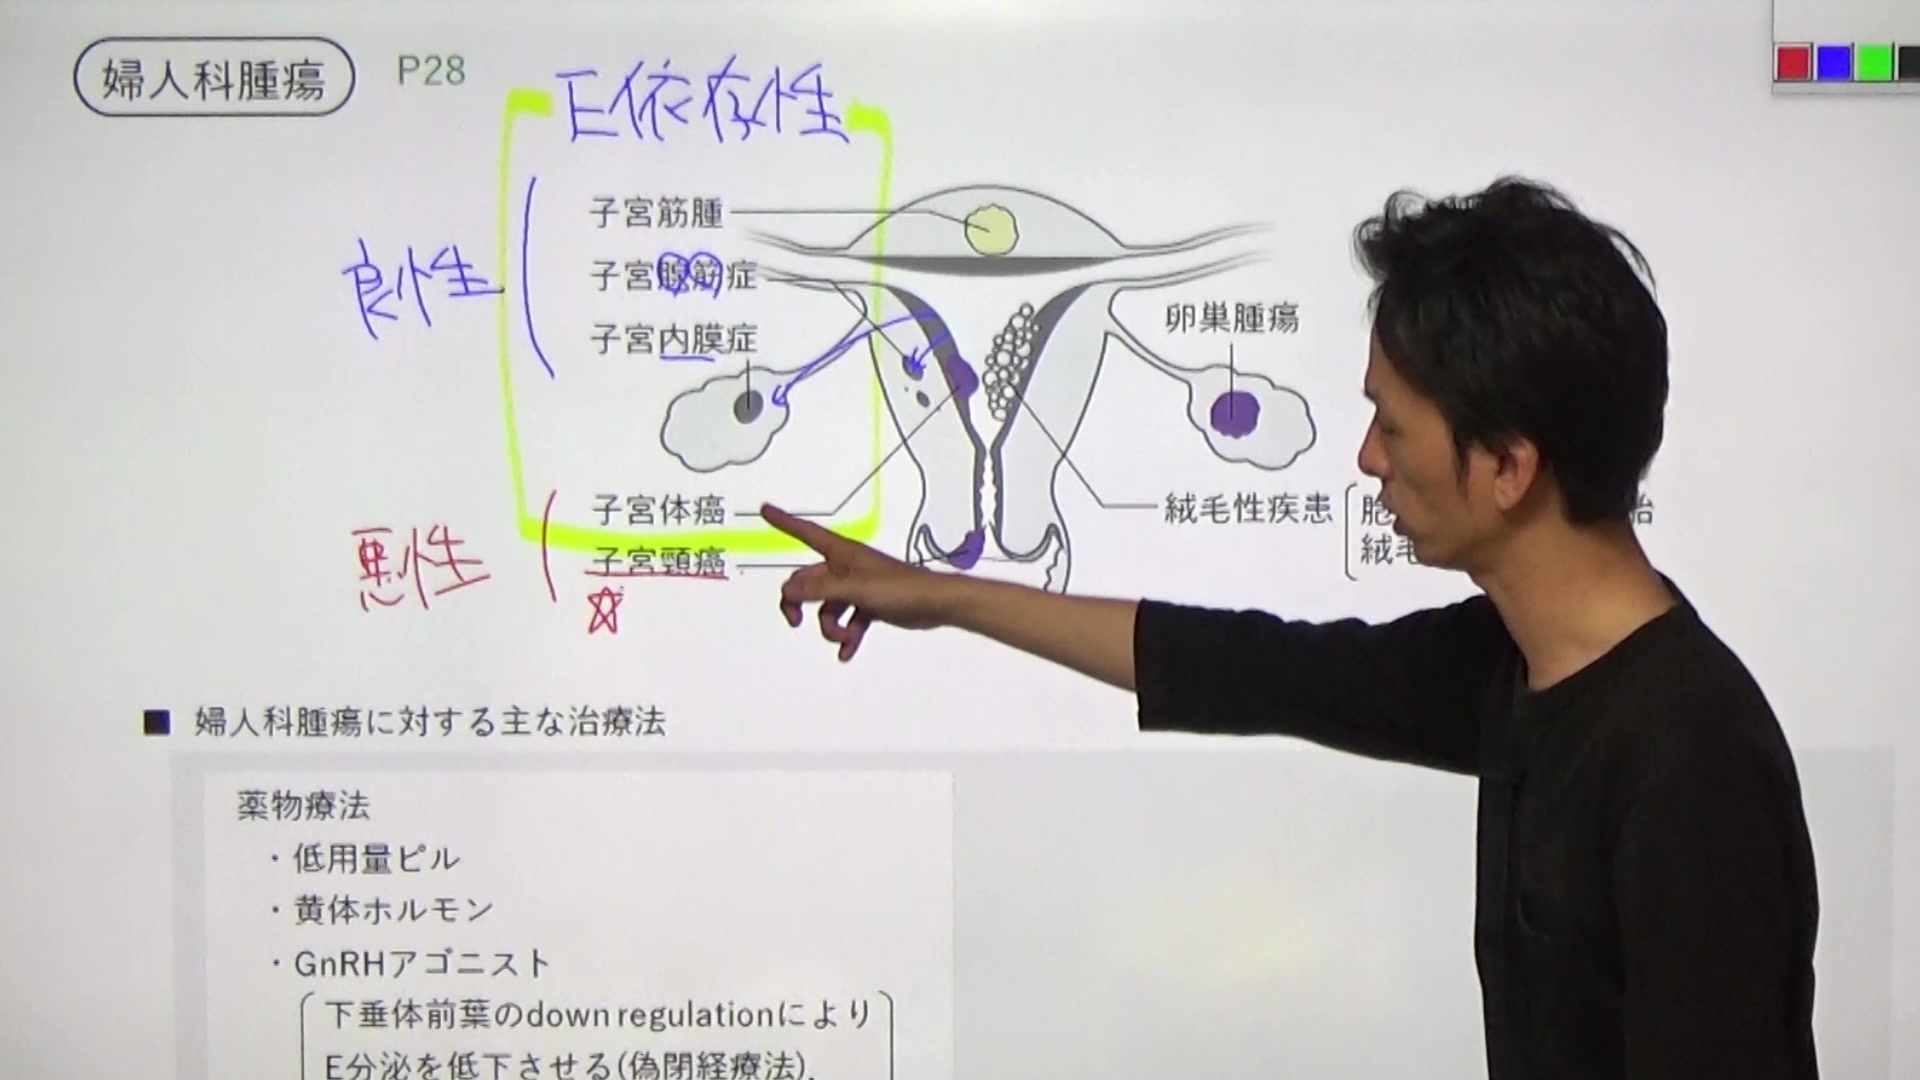 婦人科腫瘍
P28
E依存性
子宮筋腫
子宮腺筋症
子宮内膜症
良性
卵巣腫瘍
子宮体癌
子宮頸癌
悪性
絨毛性疾患
胎
絨毛
■ 婦人科腫瘍に対する主な治療法
薬物療法
・低用量ピル
・黄体ホルモン
・GnRHアゴニスト
下垂体前葉のdown regulationにより
E分泌を低下させる(偽閉経療法).